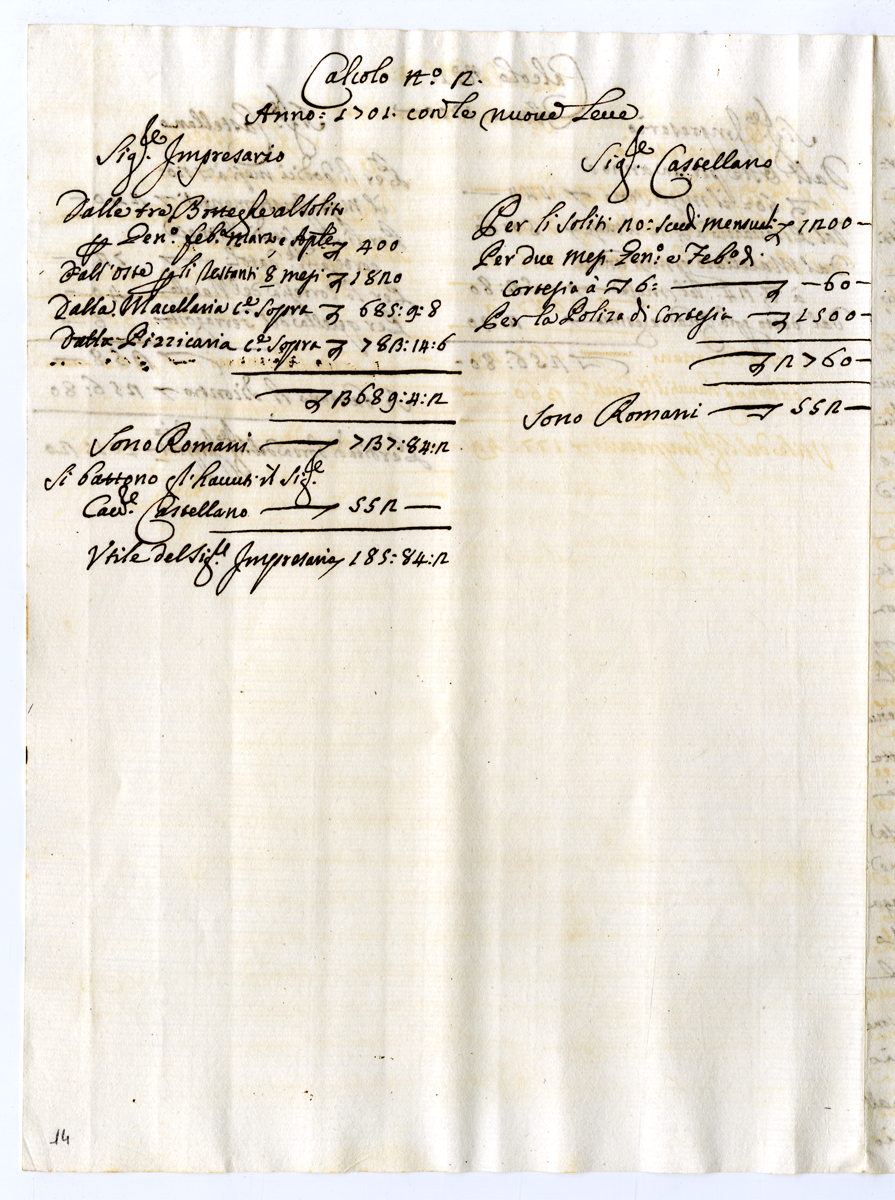 Calcolo N.o 2.
Anno: 1701. con le nuove Leve
Sig.re Impresario
Dalle tre Botteghe al solito
per Gen.o feb.o Marzo, e Aple 400
Dall'oste per li restanti 8 mesi 1820
Dalla Macellaria c.e Sopra 685:9:8
Dalla Pizzicaria c.e Sopra 783:14:6
3689:4:2
Sono Romani 737:84:2
Si battono gl'havuti il Sig.re
Cav.re Castellano 552 —
Utile del Sig.re Impresario 185:84:2
Sig.re Castellano
Per li soliti 20: scudi mensuali 1200 –
Per due mesi Gen.o e Feb.o di
cortesia à 6: — 60 –
Per la Poliza di Cortesia 1500 –
2760 –
Sono Romani 552 –
14